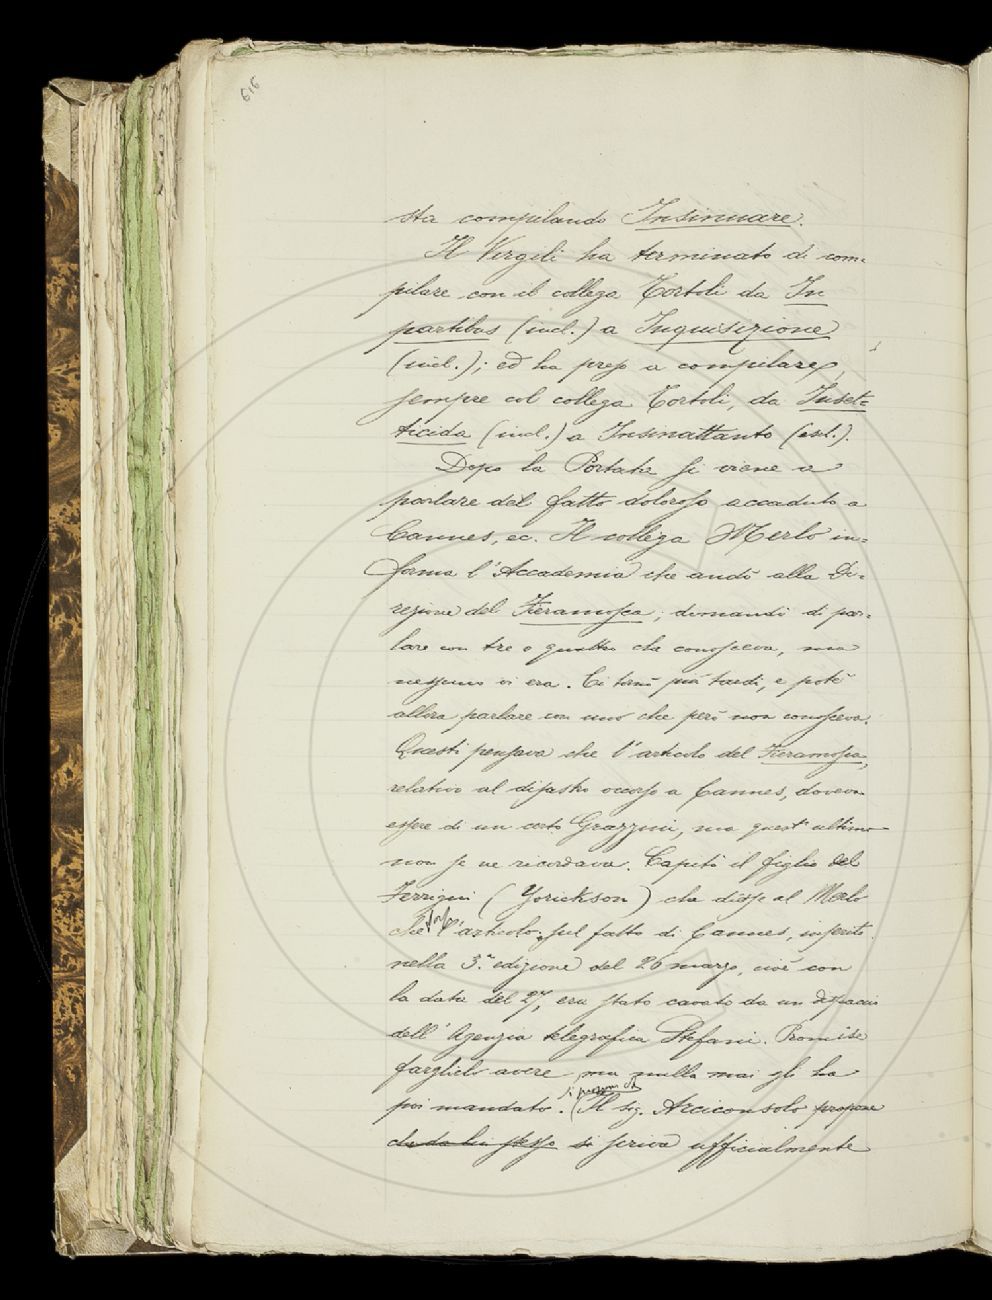 616
sta compilando Insinuare.
Il Virgili ha terminato di com-
pilare con il collega Tortoli da In
partibus (incl.) a Inquisizione
(incl.); ed ha preso a compilare,
sempre col collega Tortoli, da Inset-
ticida (incl.) a Insinattanto (escl.).
Dopo la Portata si viene a
parlare del fatto doloroso accaduto a
Cannes, ec. Il collega Merlo in-
forma l'Accademia che andò alla Di-
rezione del Fieramosca; domandò di par-
lare con tre o quattro che conosceva, ma
nessuno vi era. Ci tornò più tardi, e potè
allora parlare con uno che però non conosceva.
Questi pensava che l'articolo del Fieramosca,
relativo al disastro occorso a Cannes, doveva
essere di un certo Grazzini, ma quest'ultimo
non se ne ricordava. Capitò il figlio del
Ferrigni (Yorickson) che disse al Merlo
che l'articolo sul fatto di Cannes, inserito
nella 3.ª edizione del 26 marzo, cioè con
la data del 27, era stato cavato da un dispaccio
dell'Agenzia telegrafica Stefani. Promise
farglielo avere, ma nulla mai gli ha
poi mandato. (Il sig. Arciconsolo propone
che da lui stesso si scriva ufficialmente